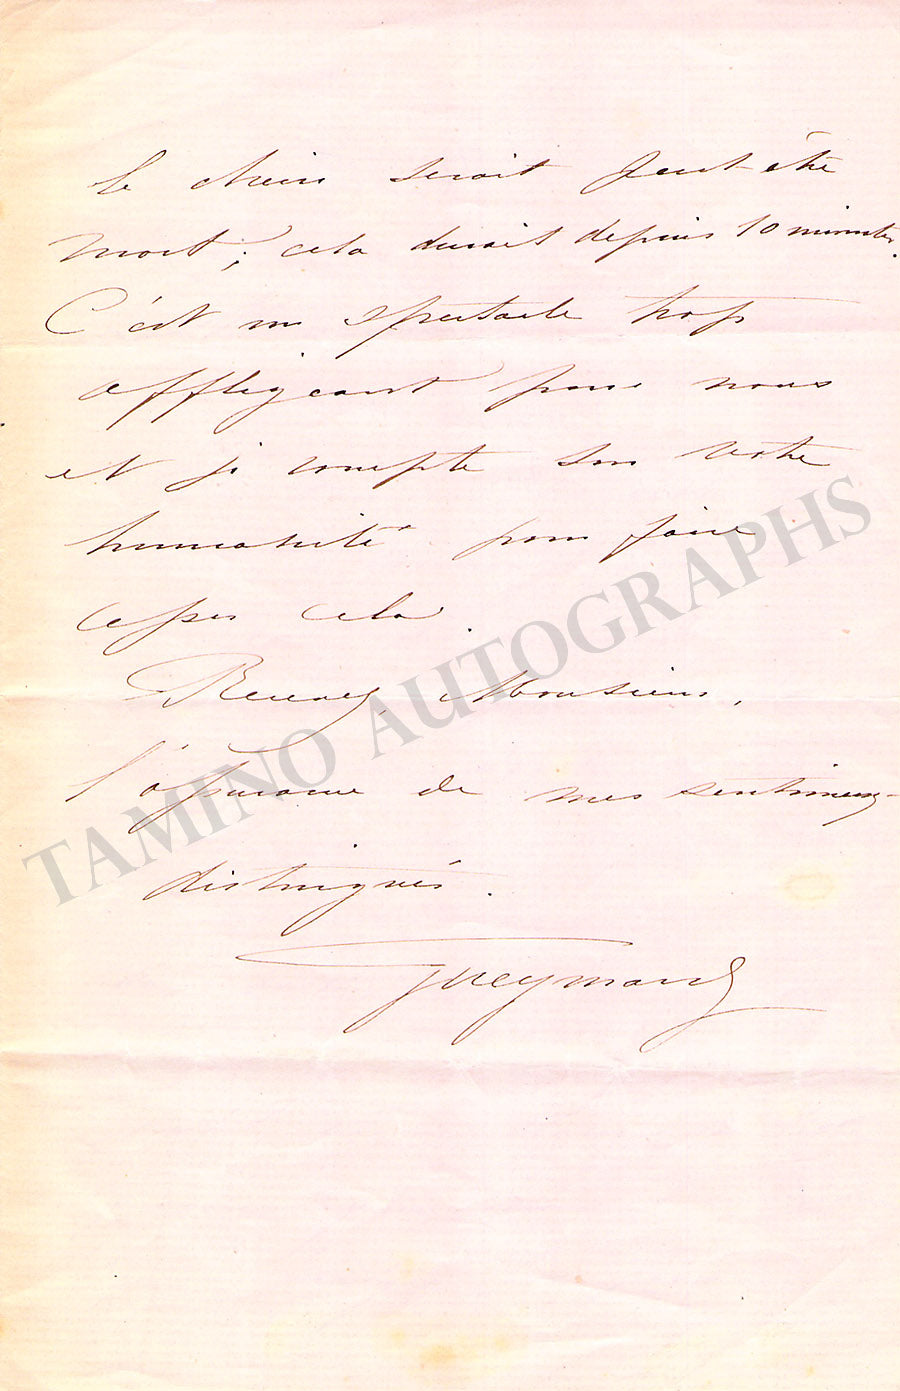 le chien serait peut-être
mort; cela durait depuis 10 minutes.
C'est un spectacle trop
affligeant pour nous
et je compte sur votre
humanité pour faire
cesser cela.
Recevez, Monsieur,
l'assurance de mes sentiments
distingués.
Gueymard
TAMINO AUTOGRAPHS